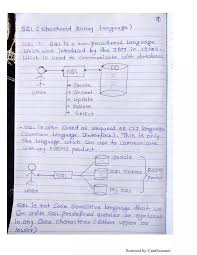 SQL (Structured Query Language)
SQL : SQL is a non-procedural language
which was introduced by the IBM in 1970's.
which is used to communicate with database
DB
SQL
user
→ Create
→ Insert
→ Update
→ Delete
→ Select
- SQL is also called as sequel or CLI language
(common language Interface). This is only
the language which can use to communicate
with any RDBMS product.
oracle
SQL
SQL Server
user
My SQL
SQL is not case sensitive language that
can write SQL predefined queries
in any case characters (either upper or
lower)
Scanned by CamScanner